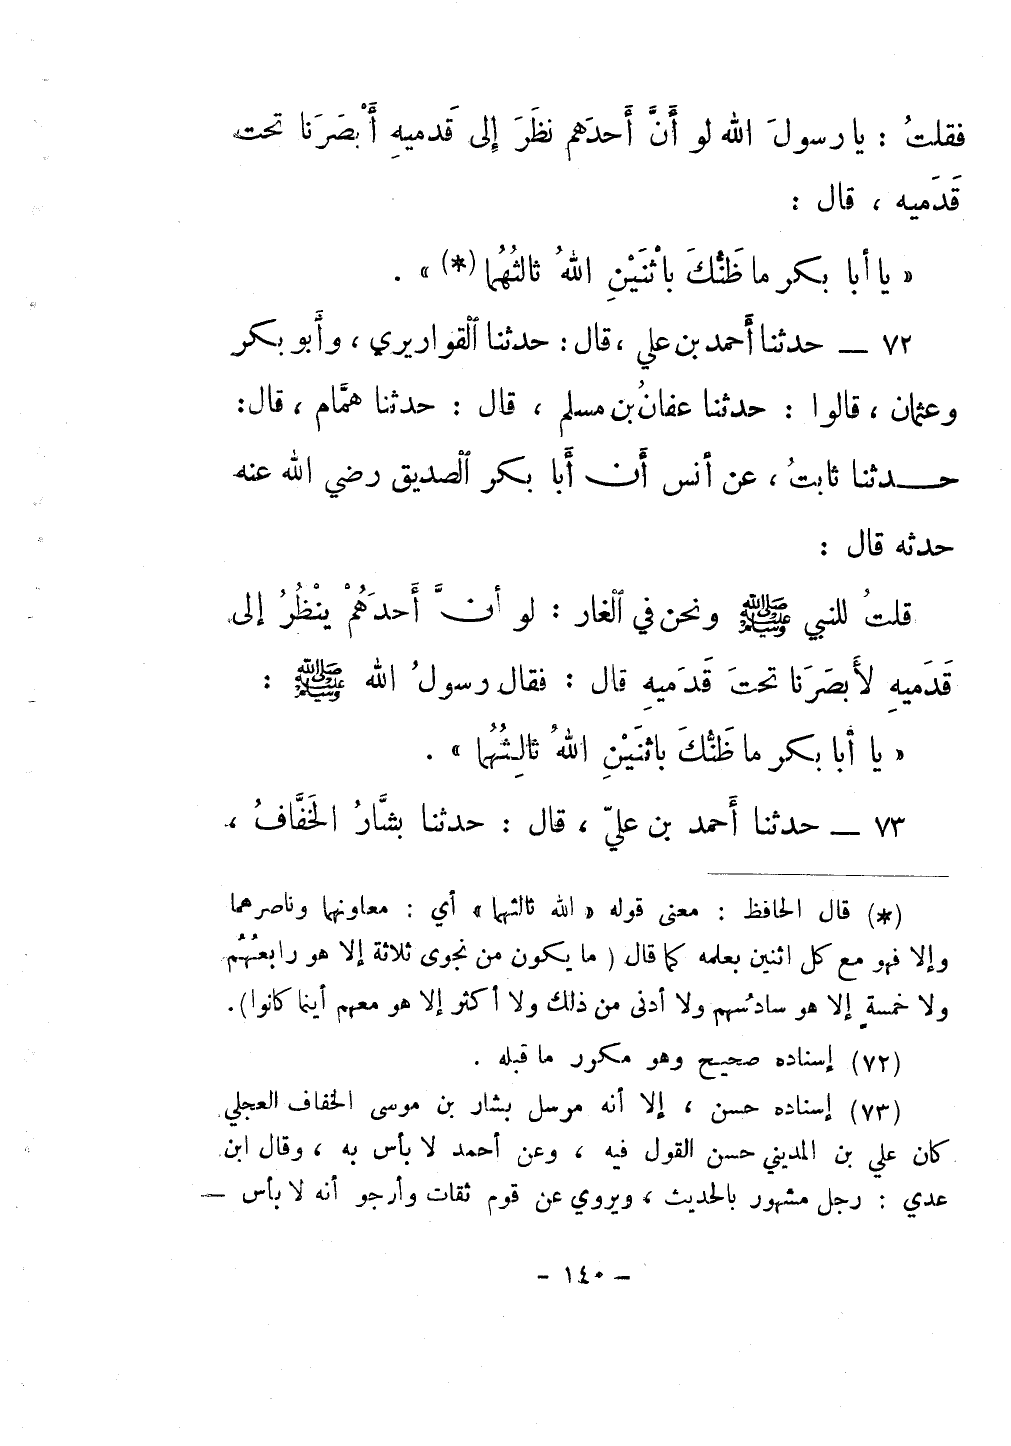 فقلتُ : يا رسولَ الله لو أَنَّ أَحدَهم نظَرَ إِلى قَدميهِ أَبْصَرَنا تحت
قَدَميه ، قال :
« يا أبا بكر ما ظَنُّكَ بأثنَيْنِ اللهُ ثالثُهُما (*) » .
٧٢ — حدثنا أَحمد بن علي ، قال : حدثنا ٱلقواريري ، وأَبو بكر
وعثمان ، قالوا : حدثنا عفانُ بن مسلم ، قال : حدثنا همَّام ، قال :
حدثنا ثابتُ ، عن أنس أَن أَبا بكر ٱلصديق رضي الله عنه
حدثه قال :
قلتُ للنبي ﷺ ونحن في ٱلغار : لو أنَّ أَحدَهُمْ ينْظُرُ إلى
قَدَميهِ لأَبصَرَنا تحتَ قَدَميهِ قال : فقال رسولُ الله ﷺ :
« يا أَبا بكر ما ظَنُّكَ باثنَيْنِ اللهُ ثالِثُهُما » .
٧٣ — حدثنا أَحمد بن عليّ ، قال : حدثنا بشَّارُ الخَفَّافُ ،
(*) قال الحافظ : معنى قوله « الله ثالثهما » أي : معاونهما وناصرهما
وإلا فهو مع كل اثنين بعلمه كما قال ( ما يكون من نجوى ثلاثة إلا هو رابعُهُم
ولا خمسةٍ إلا هو سادسُهم ولا أدنى من ذلك ولا أكثر إلا هو معهم أينما كانوا ) .
(٧٢) إسناده صحيح وهو مكرر ما قبله .
(٧٣) إسناده حسن ، إلا أنه مرسل بشار بن موسى الخفاف العجلي
كان علي بن المديني حسن القول فيه ، وعن أحمد لا بأس به ، وقال ابن
عدي : رجل مشهور بالحديث ، ويروي عن قوم ثقات وأرجو أنه لا بأس —
- ١٤٠ -